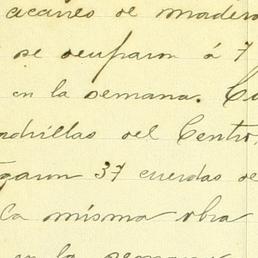 acareo de madera
se ocuparon á 7
en la semana.
drillas del Centro,
garon 37 cuerdas de
la misma obra
en la semana